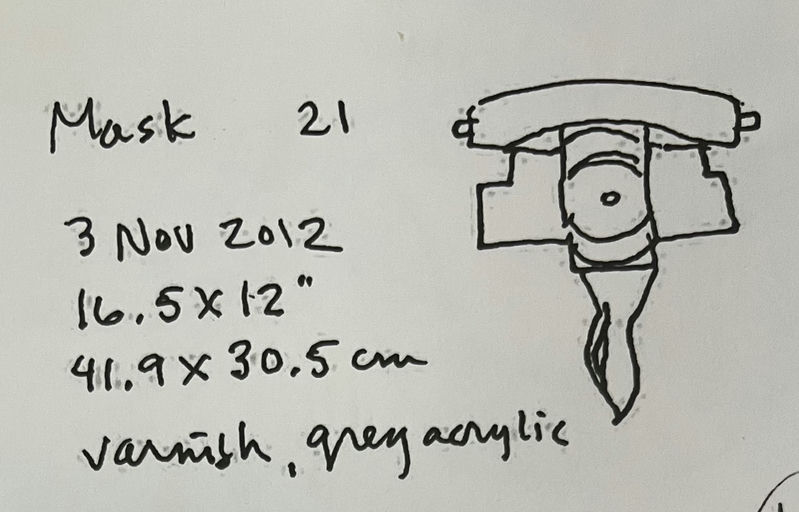 Mask 21
3 Nov 2012
16.5 x 12"
41.9 x 30.5 cm
varnish, grey acrylic